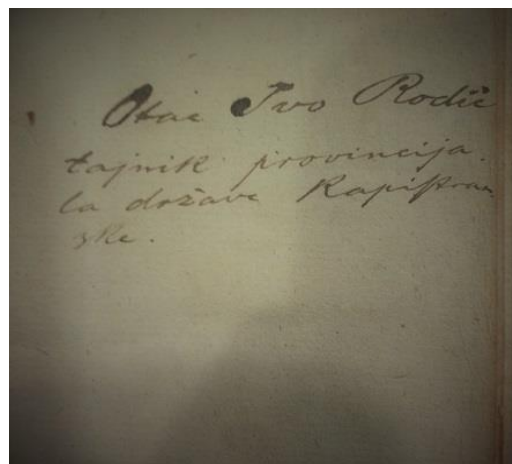 Otac Ivo Rodić
tajnik provincija-
la države Kapistran-
ske.